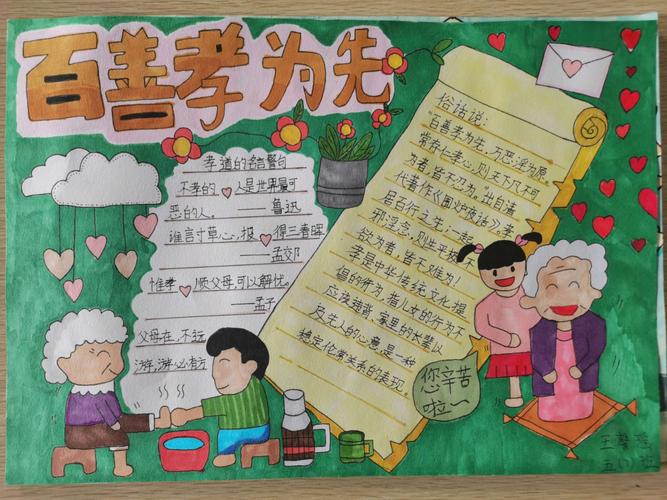 百善孝为先
孝道的名言警句
不孝的人是世界最可
恶的人。 鲁迅
谁言寸草心,报得三春晖
——孟郊
惟孝顺父母,可以解忧。
——孟子
父母在,不远
游,游必有方
俗话说:
"百善孝为先,万恶淫为源
常存仁孝心,则天下凡不可
为者,皆不忍为"出自清
代著作《围炉夜话》。孝
居百行之先;一起
邪淫念,则生平极不
欲为者,皆不难为!
孝是中华传统文化提
倡的行为,指儿女的行为不
应该违背家里的长辈以
及先人的心意是一种
稳定伦常关系的表现。
您辛苦
啦~
王馨
五(1)班